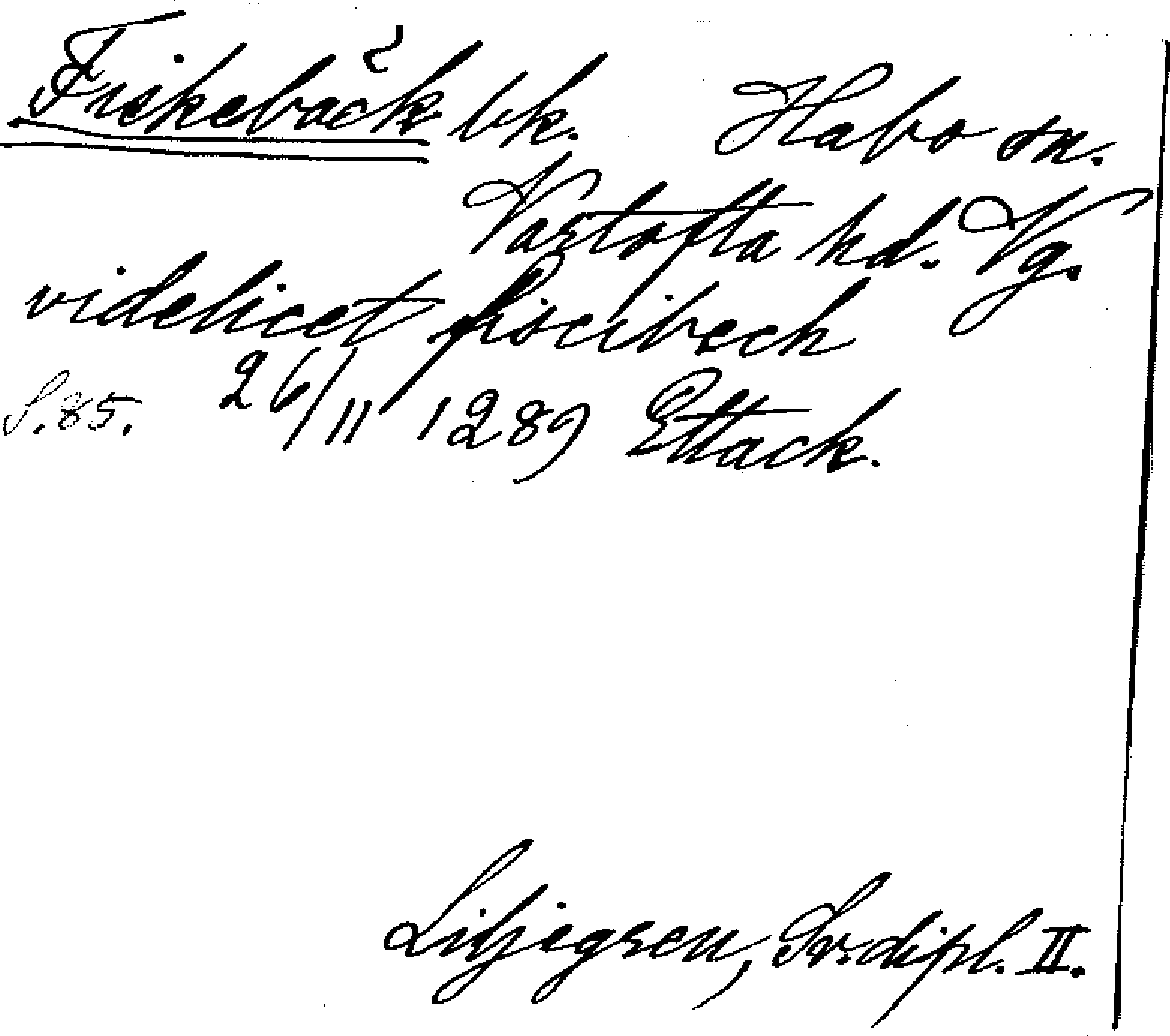 Fiskebäck bk. Habo sn.
Vartofta hd. Vg.
videlicet fiscibech
S. 85. 26/11 1289 Ettack.
Liljegren, Sv. dipl. II.